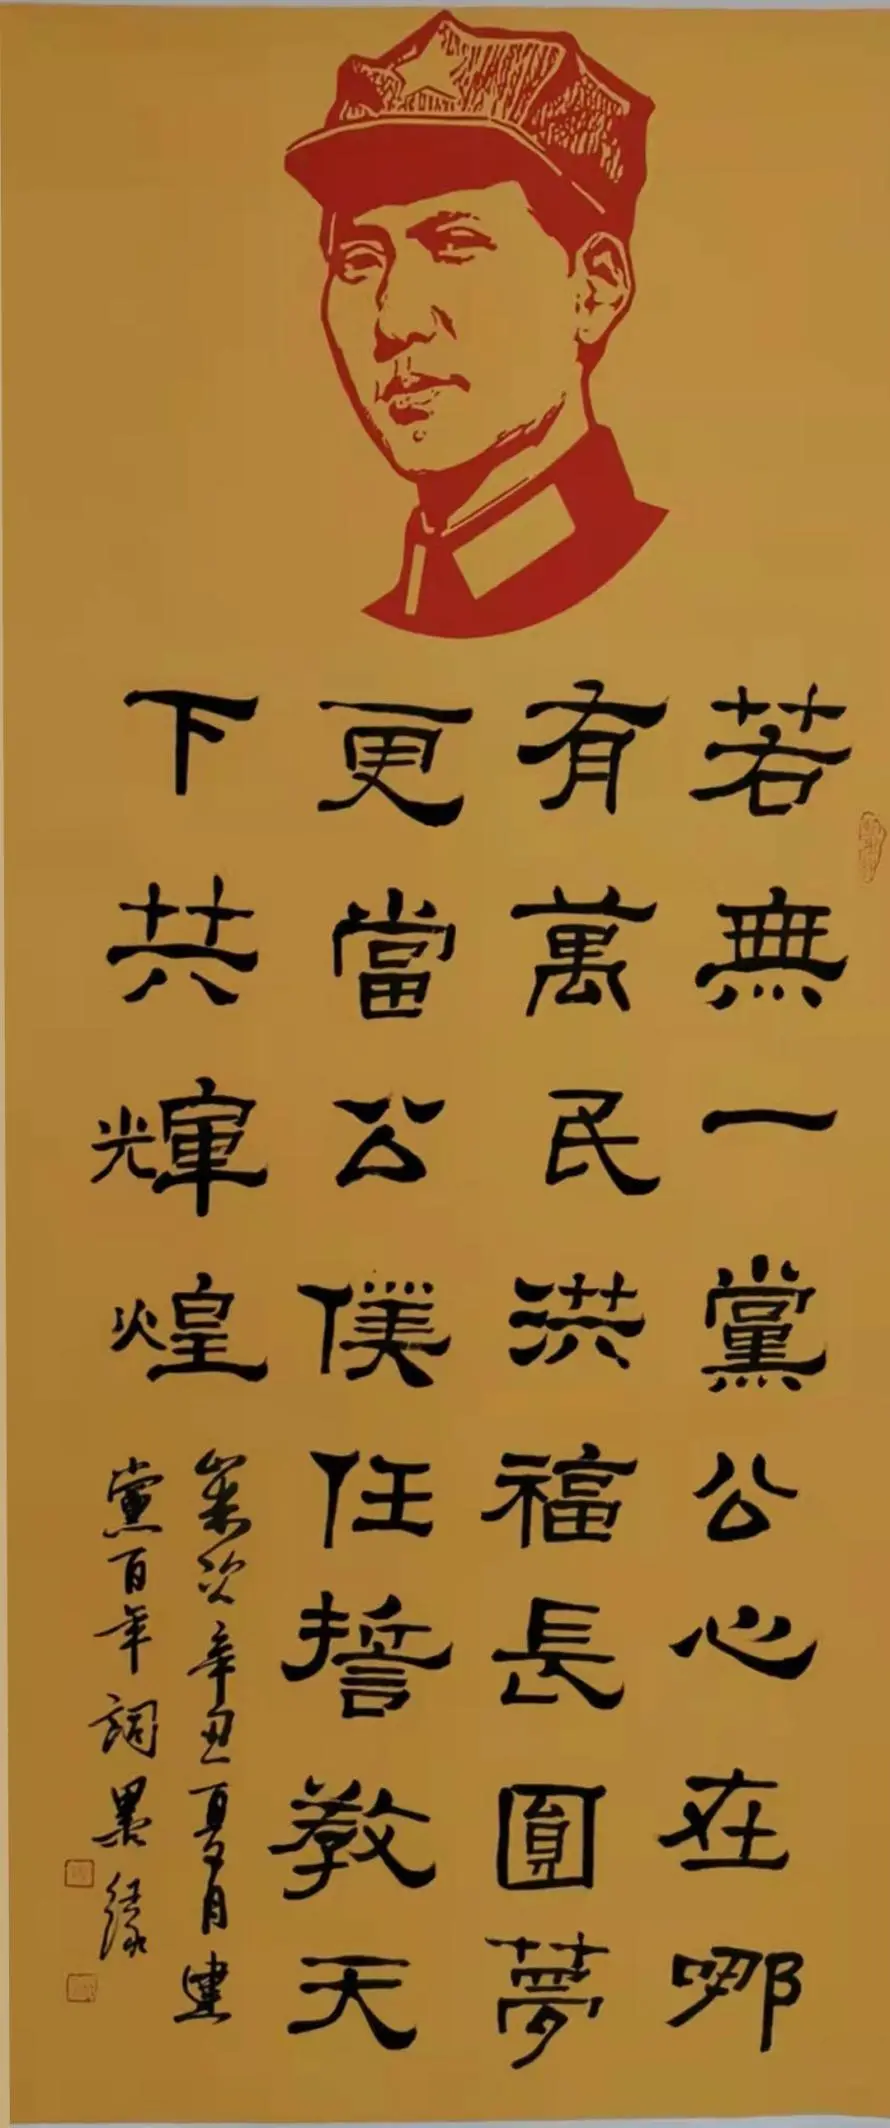 若無一黨公心在哪
有萬民洪福長圓夢
更當公僕任誓教天
下共輝煌
歲次辛丑夏月建
黨百年詞墨緣